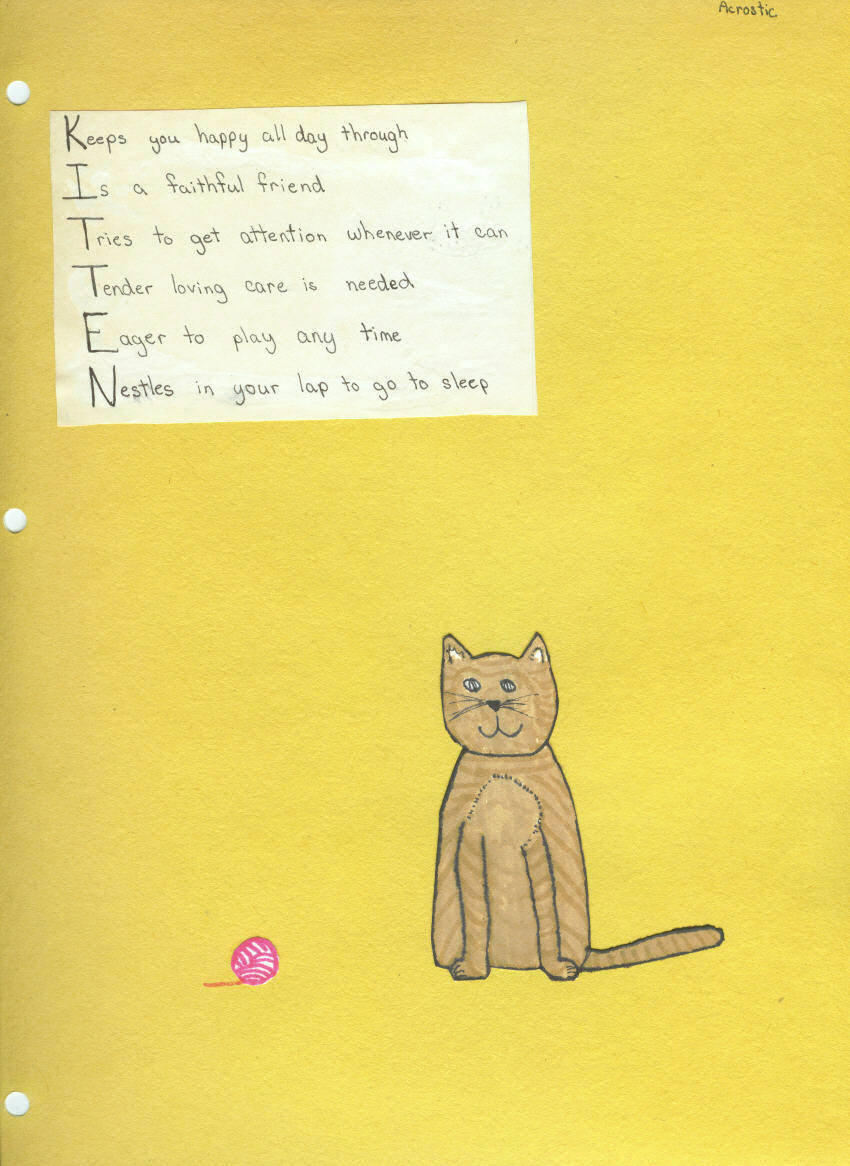 Acrostic
Keeps you happy all day through
Is a faithful friend
Tries to get attention whenever it can
Tender loving care is needed
Eager to play any time
Nestles in your lap to go to sleep